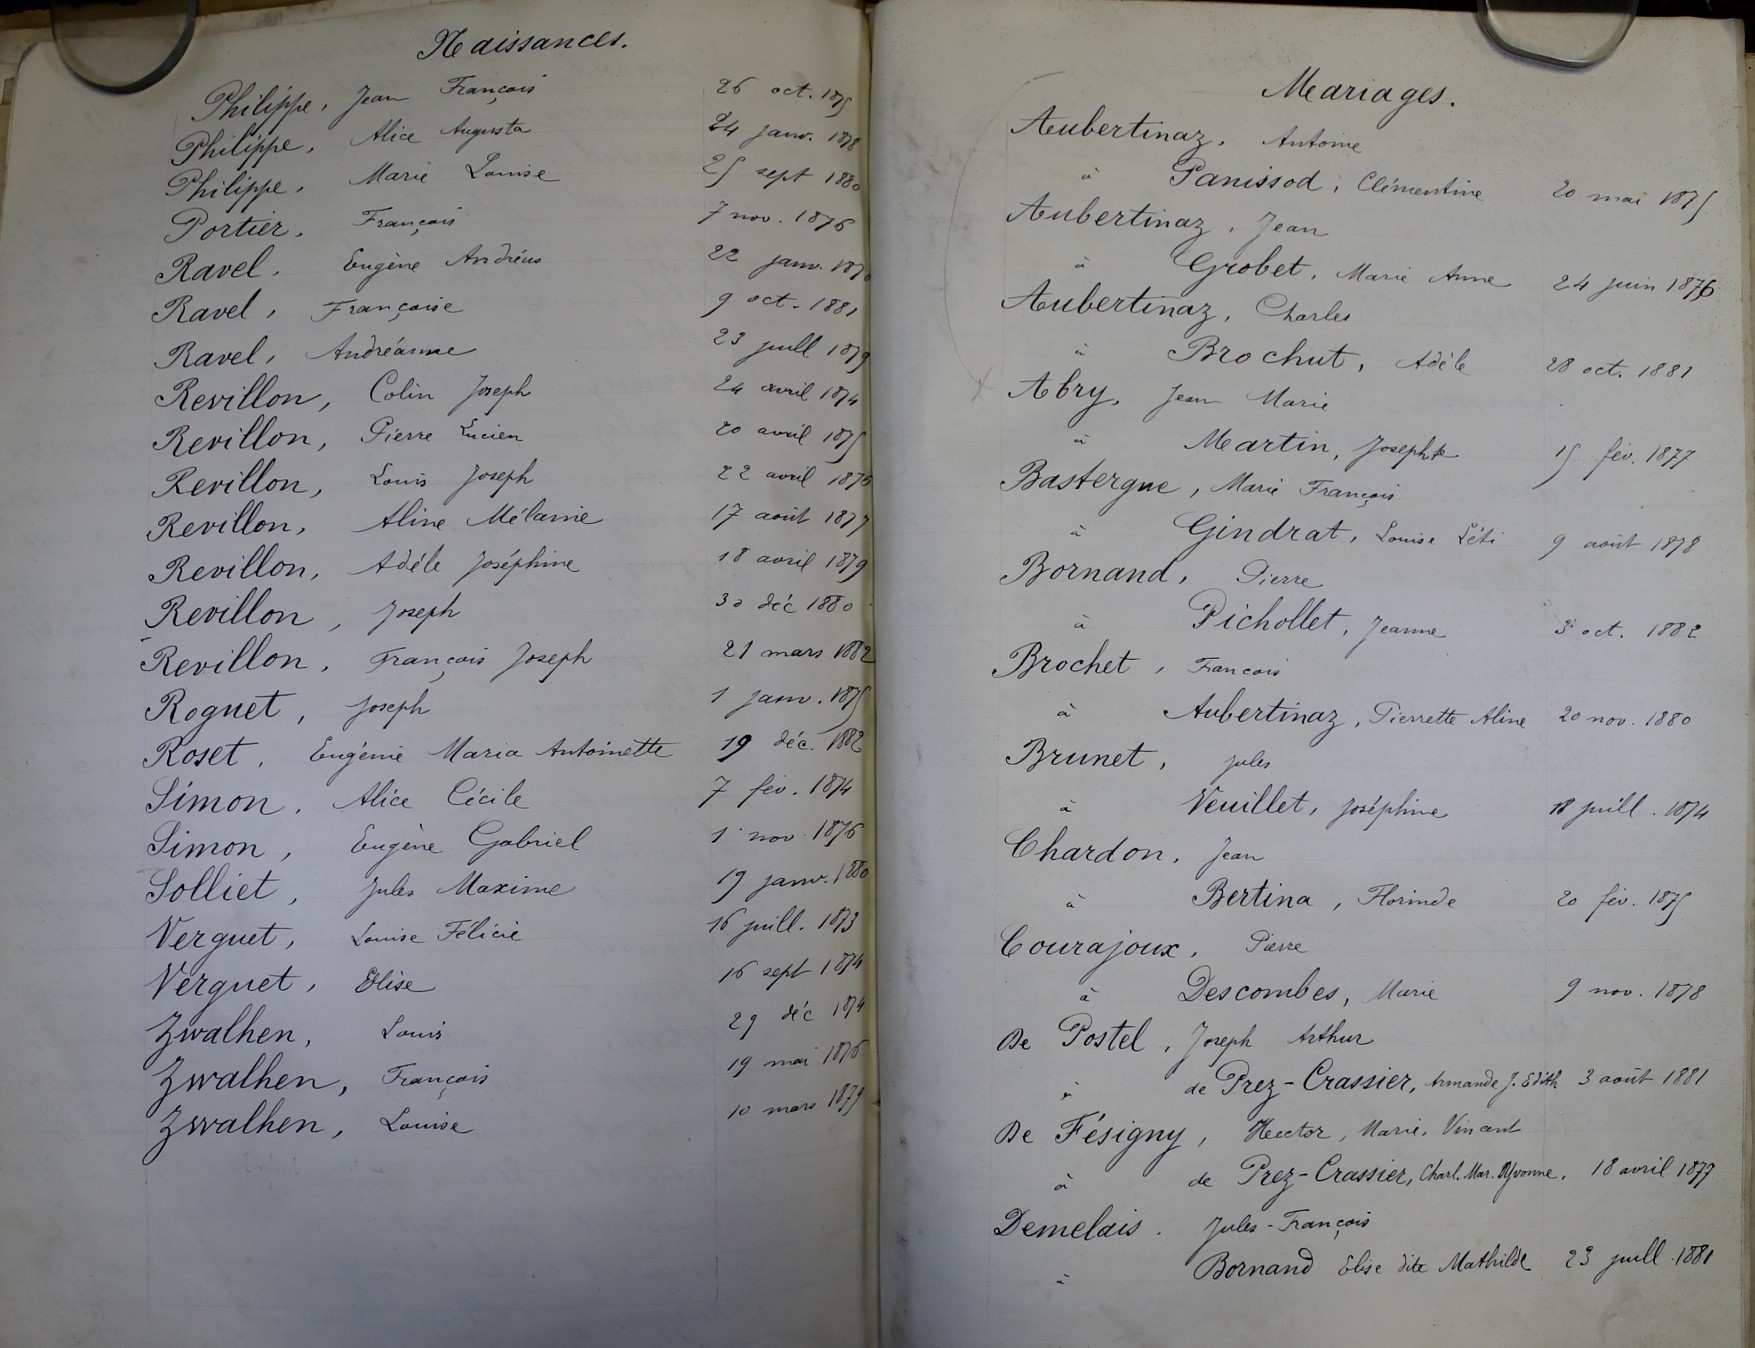 Naissances.
Philippe, Jean François 26 oct. 1875
Philippe, Alice Augusta 24 janv. 1878
Philippe, Marie Louise 25 sept 1880
Portier, François 7 nov. 1876
Ravel, Eugène Andréus 22 janv. 187
Ravel, Françoise 9 oct. 1881
Ravel, Andréanne 23 juill 1879
Revillon, Colin Joseph 24 avril 1874
Revillon, Pierre Lucien 20 avril 1875
Revillon, Louis Joseph 22 avril 1876
Revillon, Aline Mélanie 17 août 1877
Revillon, Adèle Joséphine 18 avril 1879
Revillon, Joseph 30 déc 1880
Revillon, François Joseph 21 mars 1882
Roguet, Joseph 1 janv. 1875
Roset, Eugénie Maria Antoinette 19 déc. 1882
Simon, Alice Cécile 7 fév. 1874
Simon, Eugène Gabriel 1 nov. 1876
Solliet, Jules Maxime 19 janv. 1880
Verguet, Louise Félicie 16 juill. 1873
Verguet, Elise 16 sept 1874
Zwalhen, Louis 29 déc 1874
Zwalhen, François 19 mai 1876
Zwalhen, Louise 10 mars 1879
Mariages.
Aubertinaz, Antoine
à Panissod, Clémentine 20 mai 1875
Aubertinaz, Jean
à Grobet, Marie Anne 24 juin 1876
Aubertinaz, Charles
à Brochut, Adèle 28 oct. 1881
Abry, Jean Marie
à Martin, Josephte 15 fév. 1877
Bastergue, Marie François
à Gindrat, Louise Léti 9 août 1878
Bornand, Pierre
à Pichollet, Jeanne 3 oct. 1882
Brochet, Francois
à Aubertinaz, Pierrette Aline 20 nov. 1880
Brunet, Jules
à Veuillet, Joséphine 18 juill. 1874
Chardon, Jean
à Bertina, Florinde 20 fév. 1875
Courajoux, Pierre
à Descombes, Marie 9 nov. 1878
De Postel, Joseph Arthur
à de Prez-Crassier, Armande J. Edith 3 août 1881
De Fésigny, Hector, Marie, Vincent
à de Prez-Crassier, Charl. Mar. Yvonne. 18 avril 1877
Demelais. Jules-François
à Bornand Elise dite Mathilde 23 juill. 1881